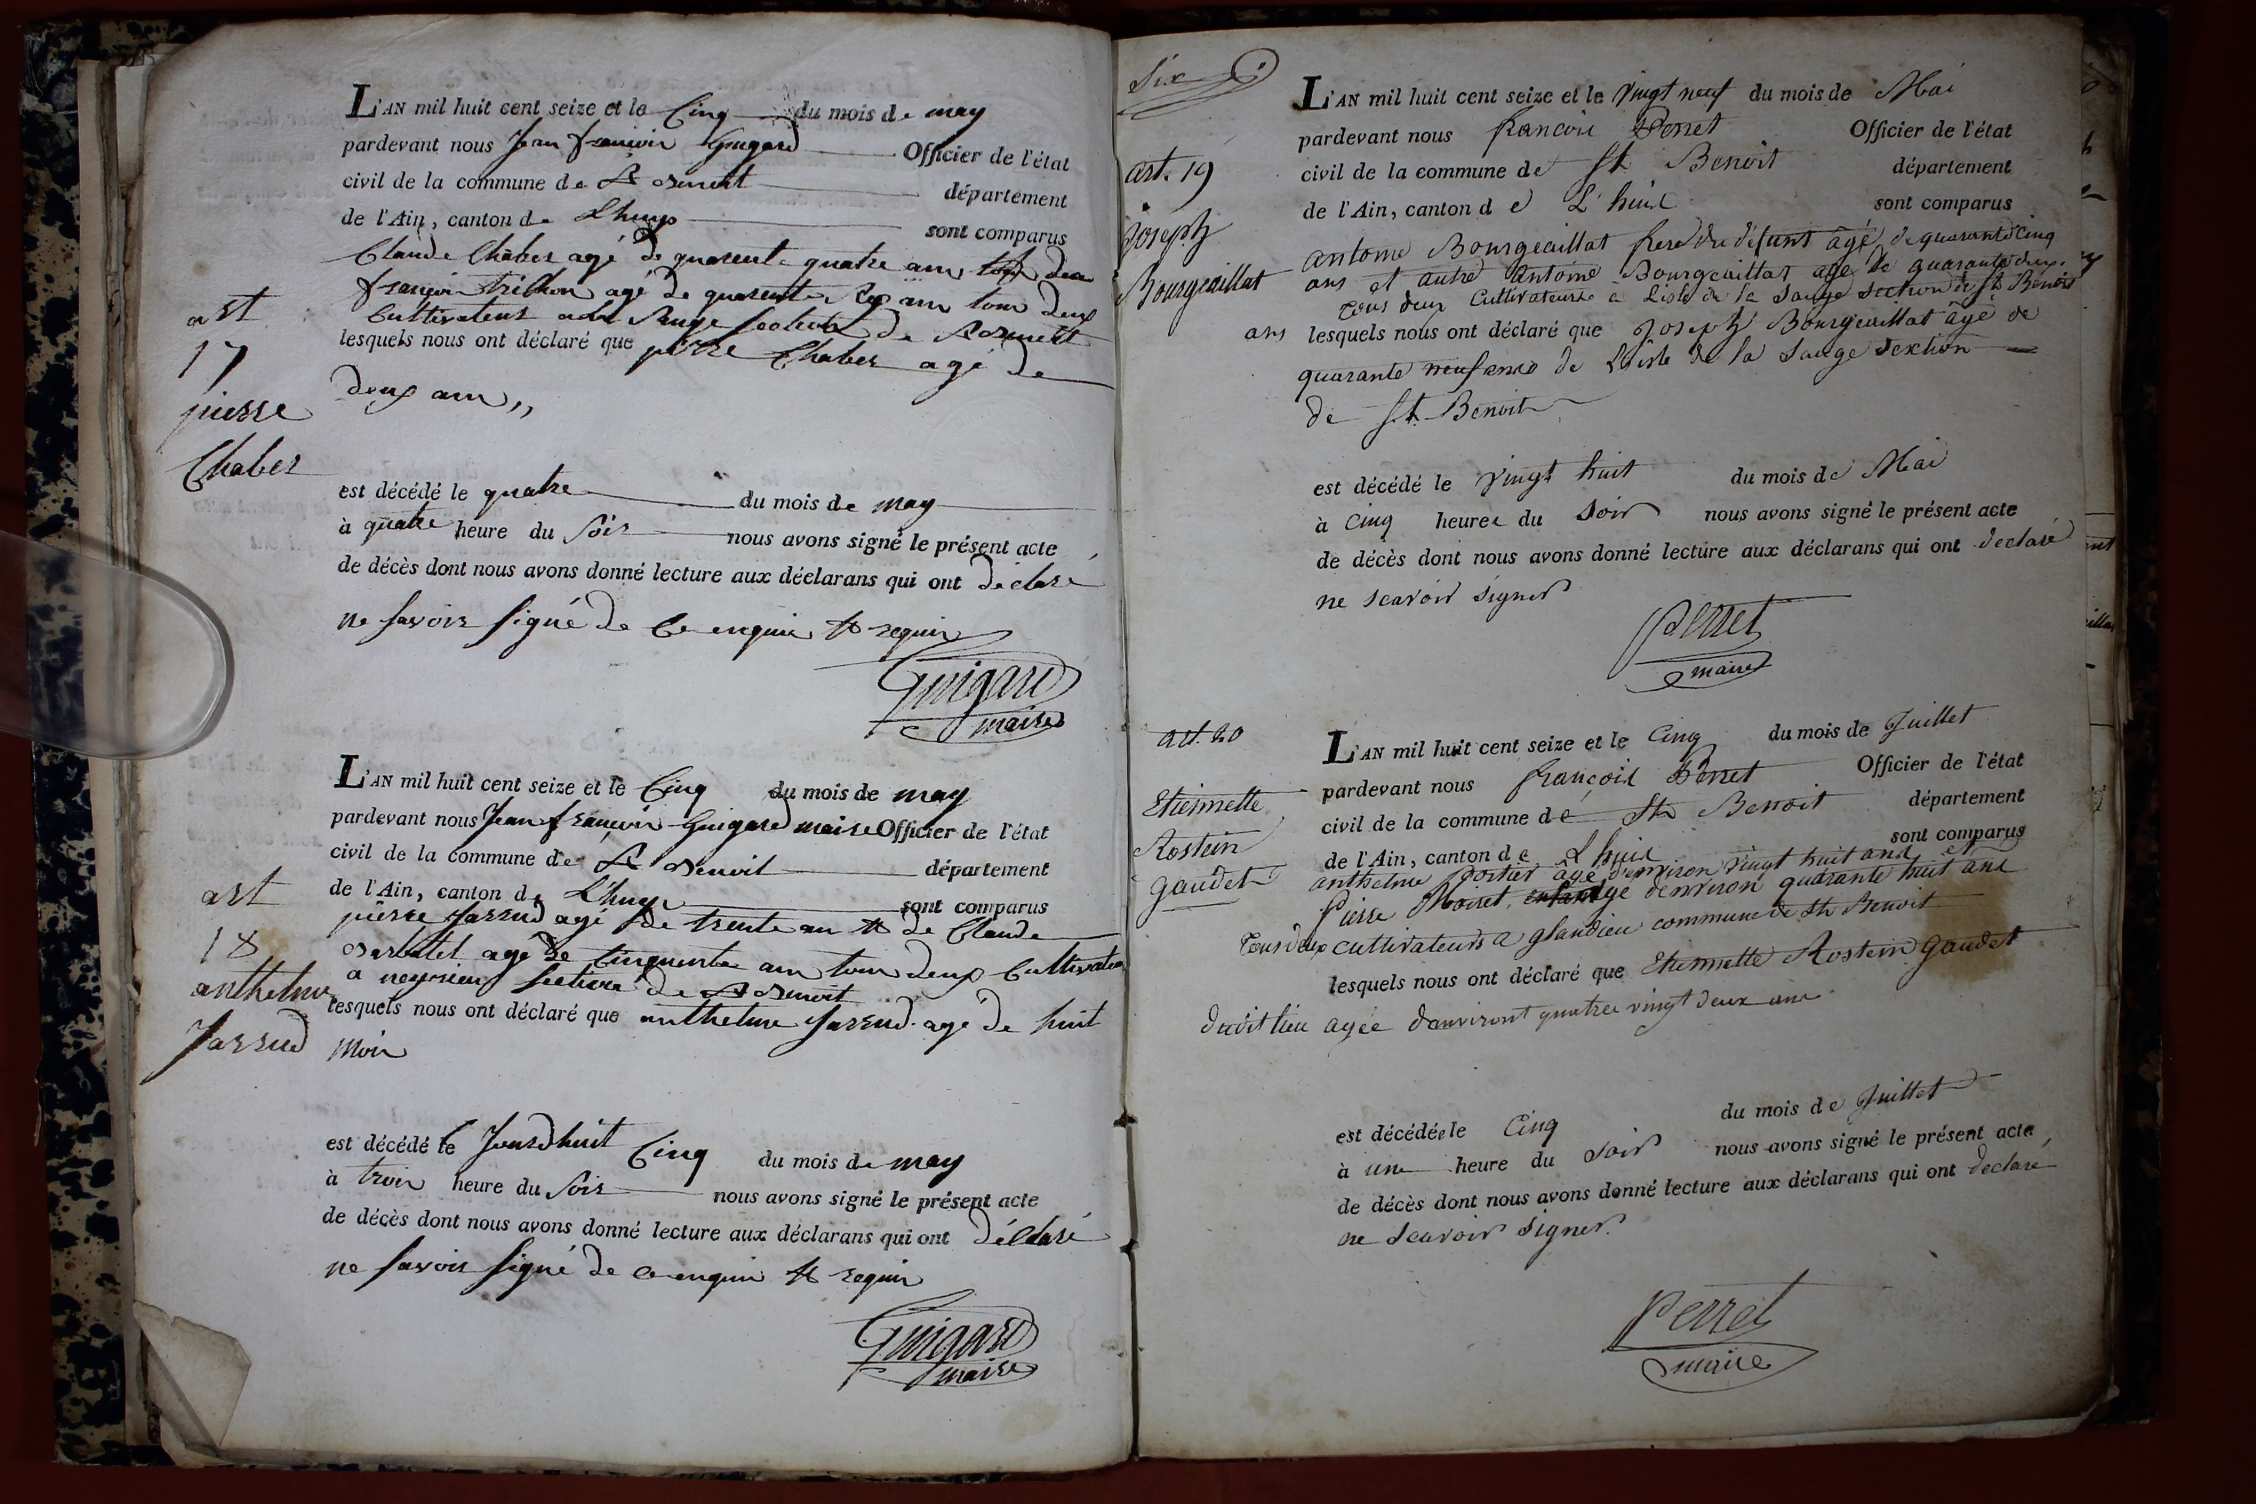 L'AN mil huit cent seize et le Cinq du mois de may
pardevant nous Jean françois Guigard Officier de l'état
civil de la commune de St Benoit département
de l'Ain, canton de Lhuys sont comparus
Claude Chaber agé de quarente quatre ans
françois trichon agé de quarente six ans tous deux
Cultivateurs a la Sauge section de St Benoit
lesquels nous ont déclaré que pierre Chaber agé de
deux ans,,
art
17
pierre
Chaber
est décédé le quatre du mois de may
à quatre heure du soir nous avons signé le présent acte
de décès dont nous avons donné lecture aux déclarans qui ont déclaré
ne savoir signé de ce enquis et requis
Guigard
maire
L'AN mil huit cent seize et le Cinq du mois de may
pardevant nous Jean françois Guigard maire Officier de l'état
civil de la commune de St Benoit département
de l'Ain, canton de Lhuys sont comparus
pierre Jarrud agé de trente ans et de Claude
Barbatet agé de Cinquente ans tous deux Cultivateurs
a neyrieu section de St Benoit
lesquels nous ont déclaré que anthelme Jarrud agé de huit
mois
art
18
anthelme
Jarrud
est décédé le Jourdhuit Cinq du mois de may
à trois heure du soir nous avons signé le présent acte
de décès dont nous avons donné lecture aux déclarans qui ont déclaré
ne savoir signé de ce enquis et requis
Guigard
maire
Six
L'AN mil huit cent seize et le Vingt neuf du mois de Mai
pardevant nous francois Perret Officier de l'état
civil de la commune de St Benoit département
de l'Ain, canton de L'huis sont comparus
antoine Bourgeaillat frere du défunt âgé de quarante Cinq
ans et autre antoine Bourgeaillat agé de quarante deux
ans
tous deux Cultivateurs à Lisle de la Sauge Section de St Benoit
lesquels nous ont déclaré que Joseph Bourgeaillat âgé de
quarante neuf ans de Lisle de la Sauge Section
de St Benoit
art. 19
Joseph
Bourgeaillat
est décédé le Vingt huit du mois de Mai
à Cinq heures du Soir nous avons signé le présent acte
de décès dont nous avons donné lecture aux déclarans qui ont declaré
ne scavoir signer
Perret
maire
art. 20
Etiennette
Rostein
gaudet
L'AN mil huit cent seize et le Cinq du mois de Juillet
pardevant nous françois Perret Officier de l'état
civil de la commune de St Benoit département
de l'Ain, canton de Lhuis sont comparus
anthelme portier âgé d'environ vingt huit ans et
Pierre Moiret agé denviron quarante huit ans
Tous deux cultivateurs a glandieu commune de St Benoit
lesquels nous ont déclaré que Etiennette Rostein gaudet
dudit lieu agée danviront quatre vingt deux ans
est décédée le Cinq du mois de Juillet
à une heure du Soir nous avons signé le présent acte
de décès dont nous avons donné lecture aux déclarans qui ont declaré
ne scavoir signer.
Perret
maire